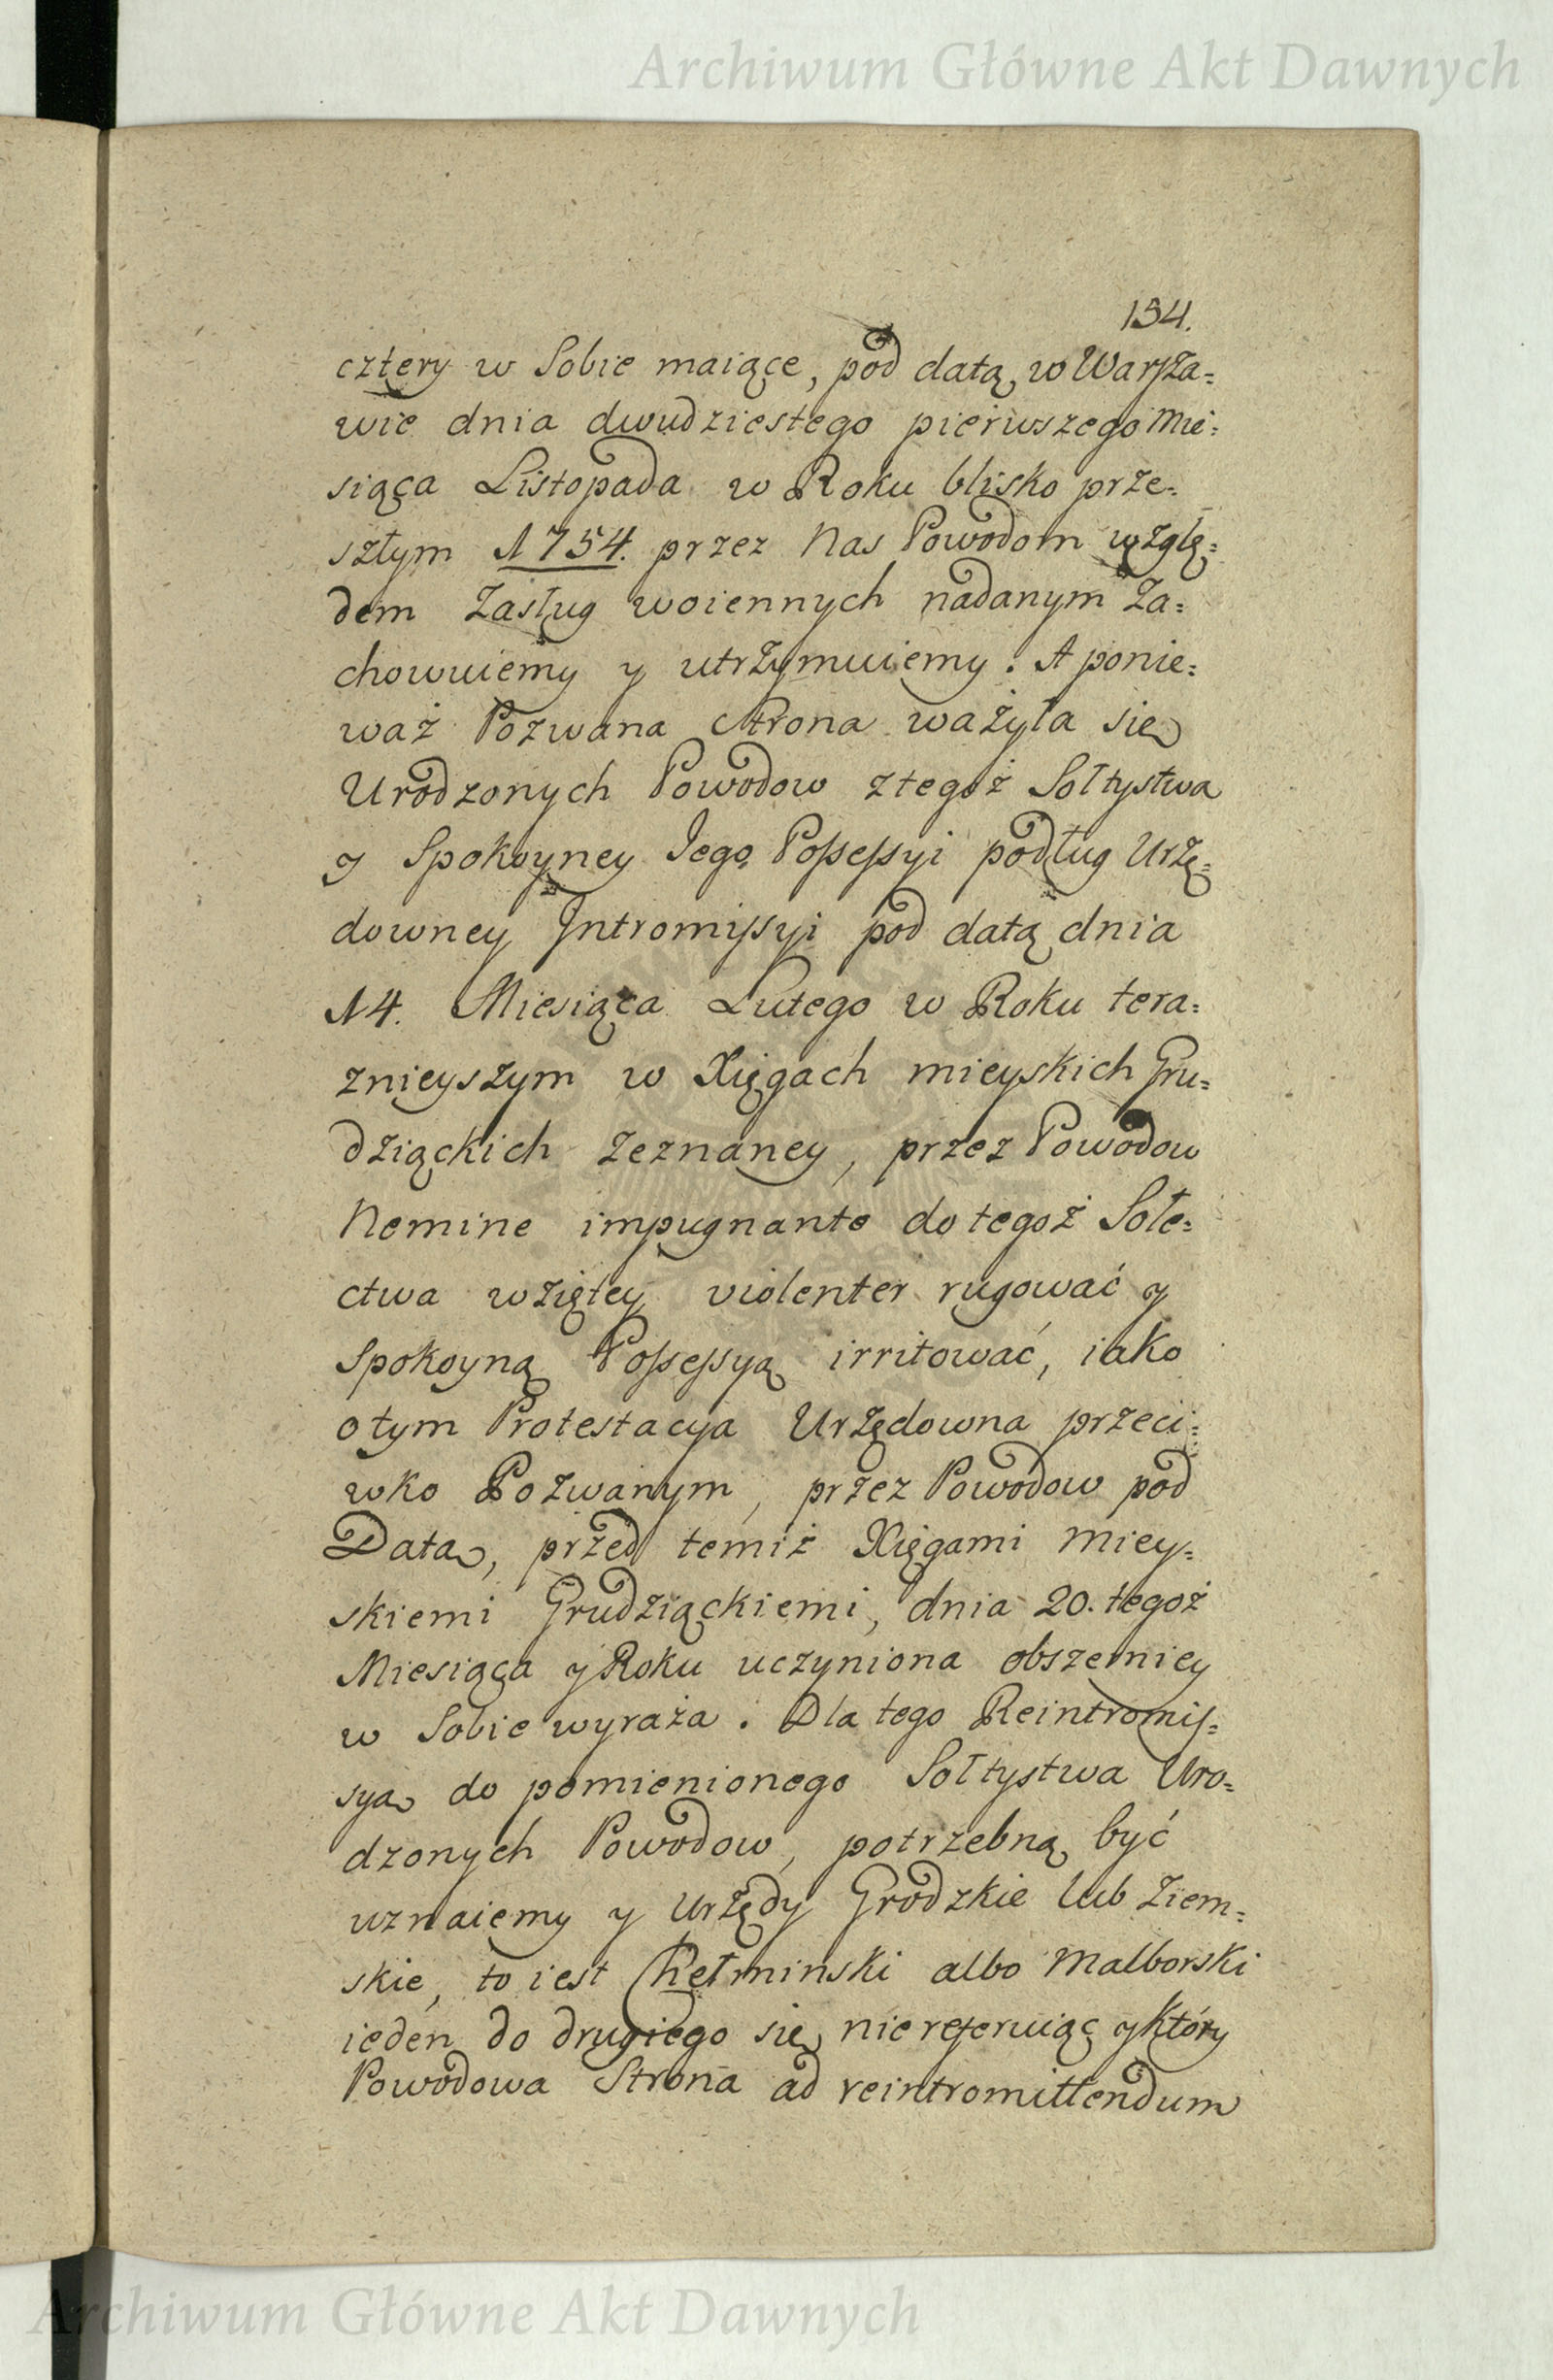 Archiwum Główne Akt Dawnych
134.
cztery w Sobie maiące, pod datą w Warsza=
wie dnia dwudziestego pierwszego Mie=
siąca Listopada w Roku blisko prze=
szłym 1754. przez Nas Powodom wzglę=
dem Zasług woiennych nadanym Za=
chowuiemy y utrzymuiemy. A ponie=
waż Pozwana Strona ważyła się
Urodzonych Powodow z tegoż Sołtystwa
y Spokoyney Iego Possessyi podług Urzę=
downey Intromissyi pod datą dnia
14. Miesiąca Lutego w Roku tera=
znieyszym w Xięgach mieyskich Gru=
dziąckich Zeznaney, przez Powodow
Nemine impugnante do tegoż Sołe=
ctwa wziętey violenter rugować y
Spokoyną Possessyą irritować, iako
o tym Protestacya Urzędowna przeci=
wko Pozwanym, przez Powodow pod
Datą, przed temiż Xięgami Miey=
skiemi Grudziąckiemi, dnia 20. tegoż
Miesiąca y Roku uczyniona obszerniey
w Sobie wyraża. Dla tego Reintromis=
syą do pomienionego Sołtystwa Uro=
dzonych Powodow, potrzebną być
uznaiemy y Urzędy Grodzkie lub Ziem=
skie, to iest Chełminski albo Malborski
ieden do drugiego się nie referuiąc y który
Powodowa Strona ad reintromittendum
Archiwum Główne Akt Dawnych